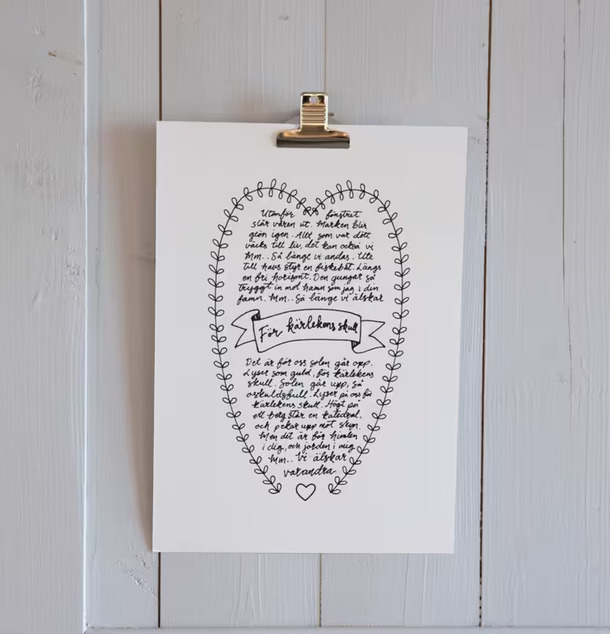 Utanför fönstret
slår våren ut. Marken blir
grön igen. Allt som var dött
väcks till liv, det kan också vi
Mm.. Så länge vi andas. Ute
till havs styr en fiskebåt. Längs
en fri horisont. Den gungar så
tryggt in mot hamn som jag i din
famn. Mm.. Så länge vi älskar
För kärlekens skull
Det är för oss solen går opp.
Lyser som guld, för kärlekens
skull. Solen går upp, så
oskuldsfull. Lyser på oss för
kärlekens skull. Högt på
ett berg står en katedral,
och pekar upp mot skyn.
Men det är för himlen
i dig, och jorden i mig
Mm.. Vi älskar
varandra